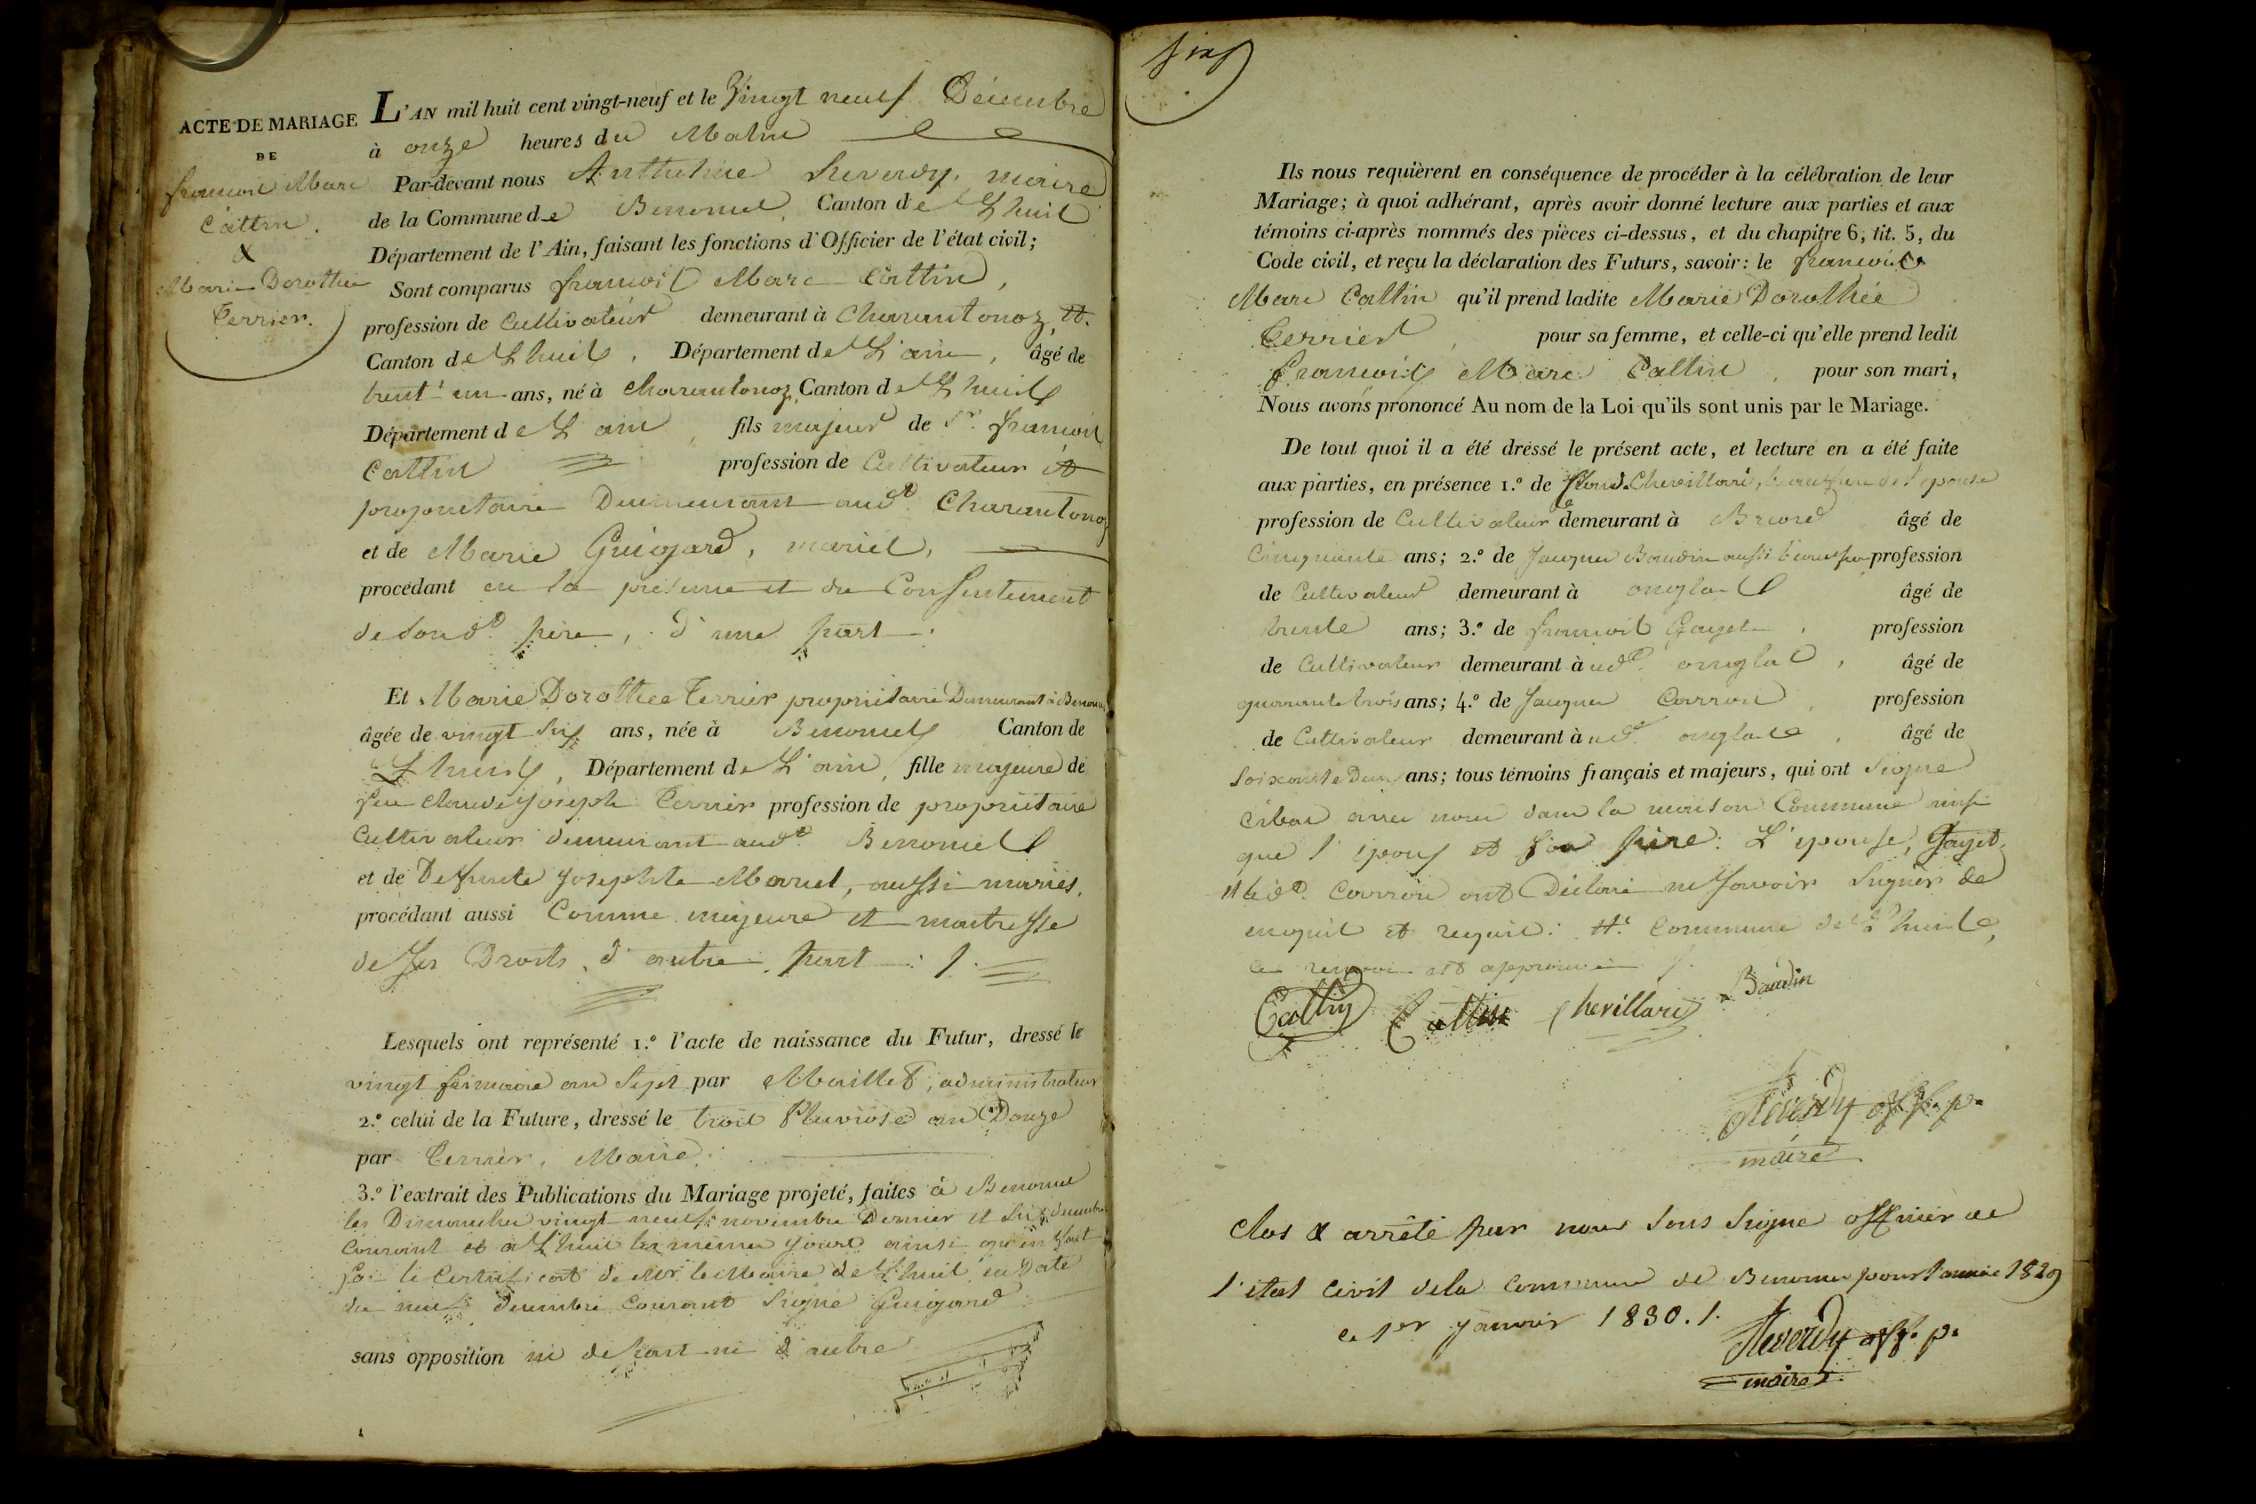 ACTE DE MARIAGE
DE
françois Marc
Cattin.
&
Marie Dorothée
Terrier.
L'AN mil huit cent vingt-neuf et le Vingt neuf Décembre
à onze heures du Matin
Par-devant nous Anthelme Reverdy, maire
de la Commune de Benonce, Canton de Lhuis
Département de l'Ain, faisant les fonctions d'Officier de l'état civil;
Sont comparus françois Marc Cattin,
profession de Cultivateur demeurant à Charantonoz, #.
Canton de Lhuis, Département de L'ain, âgé de
trent' un ans, né à Charantonoz, Canton de Lhuis
Département de L'ain, fils majeur de Sr. françois
Cattin profession de Cultivateur et
propriétaire Demeurant aud. Charantonoz
et de Marie Guigard, mariés,
procédant en la présence et du Consentement
de son d. père, d'une part.
Et Marie Dorothée Terrier propriétaire Demeurant à Benonce
âgée de vingt Six ans, née à Benonce Canton de
Lhuis, Département de L'ain, fille majeure de
feu Claude Joseph Terrier profession de propriétaire
Cultivateur demeurant aud. Benonce
et de Defunte Josephte Maruel, aussi mariés,
procédant aussi Comme majeure et maitresse
de ses Droits, d'autre part. /.
Lesquels ont représenté 1.º l'acte de naissance du Futur, dressé le
vingt frimaire an Sept par Maillet, administrateur
2.º celui de la Future, dressé le trois Pluviose an Douze
par Terrier, Maire.
3.º l'extrait des Publications du Mariage projeté, faites à Benonce
les Dimanches vingt neuf novembre Dernier et Six décembre
Courant et à Lhuis les mêmes jours ainsi qu'en fait
foi le Certificat de Mr. le Maire de Lhuis en Date
du neuf décembre Courant Signé Guigard
sans opposition ni de part ni d'autre
Six
Ils nous requièrent en conséquence de procéder à la célébration de leur
Mariage; à quoi adhérant, après avoir donné lecture aux parties et aux
témoins ci-après nommés des pièces ci-dessus, et du chapitre 6, tit. 5, du
Code civil, et reçu la déclaration des Futurs, savoir: le françois
Marc Cattin qu'il prend ladite Marie Dorothée
Terrier, pour sa femme, et celle-ci qu'elle prend ledit
François Marc Cattin, pour son mari,
Nous avons prononcé Au nom de la Loi qu'ils sont unis par le Mariage.
De tout quoi il a été dressé le présent acte, et lecture en a été faite
aux parties, en présence 1.º de Claude Chevillard, beaufrere de l'epouse
profession de Cultivateur demeurant à Briord âgé de
Cinquante ans; 2.º de Jacques Baudin aussi beaufrere profession
de Cultivateur demeurant à onglas âgé de
trente ans; 3.º de françois Gayet, profession
de Cultivateur demeurant à ud. onglas, âgé de
quarante trois ans; 4.º de Jacques Carron, profession
de Cultivateur demeurant à ud. onglas, âgé de
Soixante Deux ans; tous témoins français et majeurs, qui ont Signé
Cibas avec nous dans la maison Commune ainsi
que l'epoux et son père. L'epouse, Gayet,
et led. Carron ont Déclaré ne savoir Signer de
enquis et requis. #. Commune de Lhuis,
ce renvoi est approuvé /.
Cattin Cattin Chevillard Baudin
Reverdy off. p.
maire
Clos & arrêté par nous Sous Signé officier de
l'état Civil de la Commune de Benonce pour l'année 1829
ce 1er janvier 1830. /.
Reverdy off. p.
maire